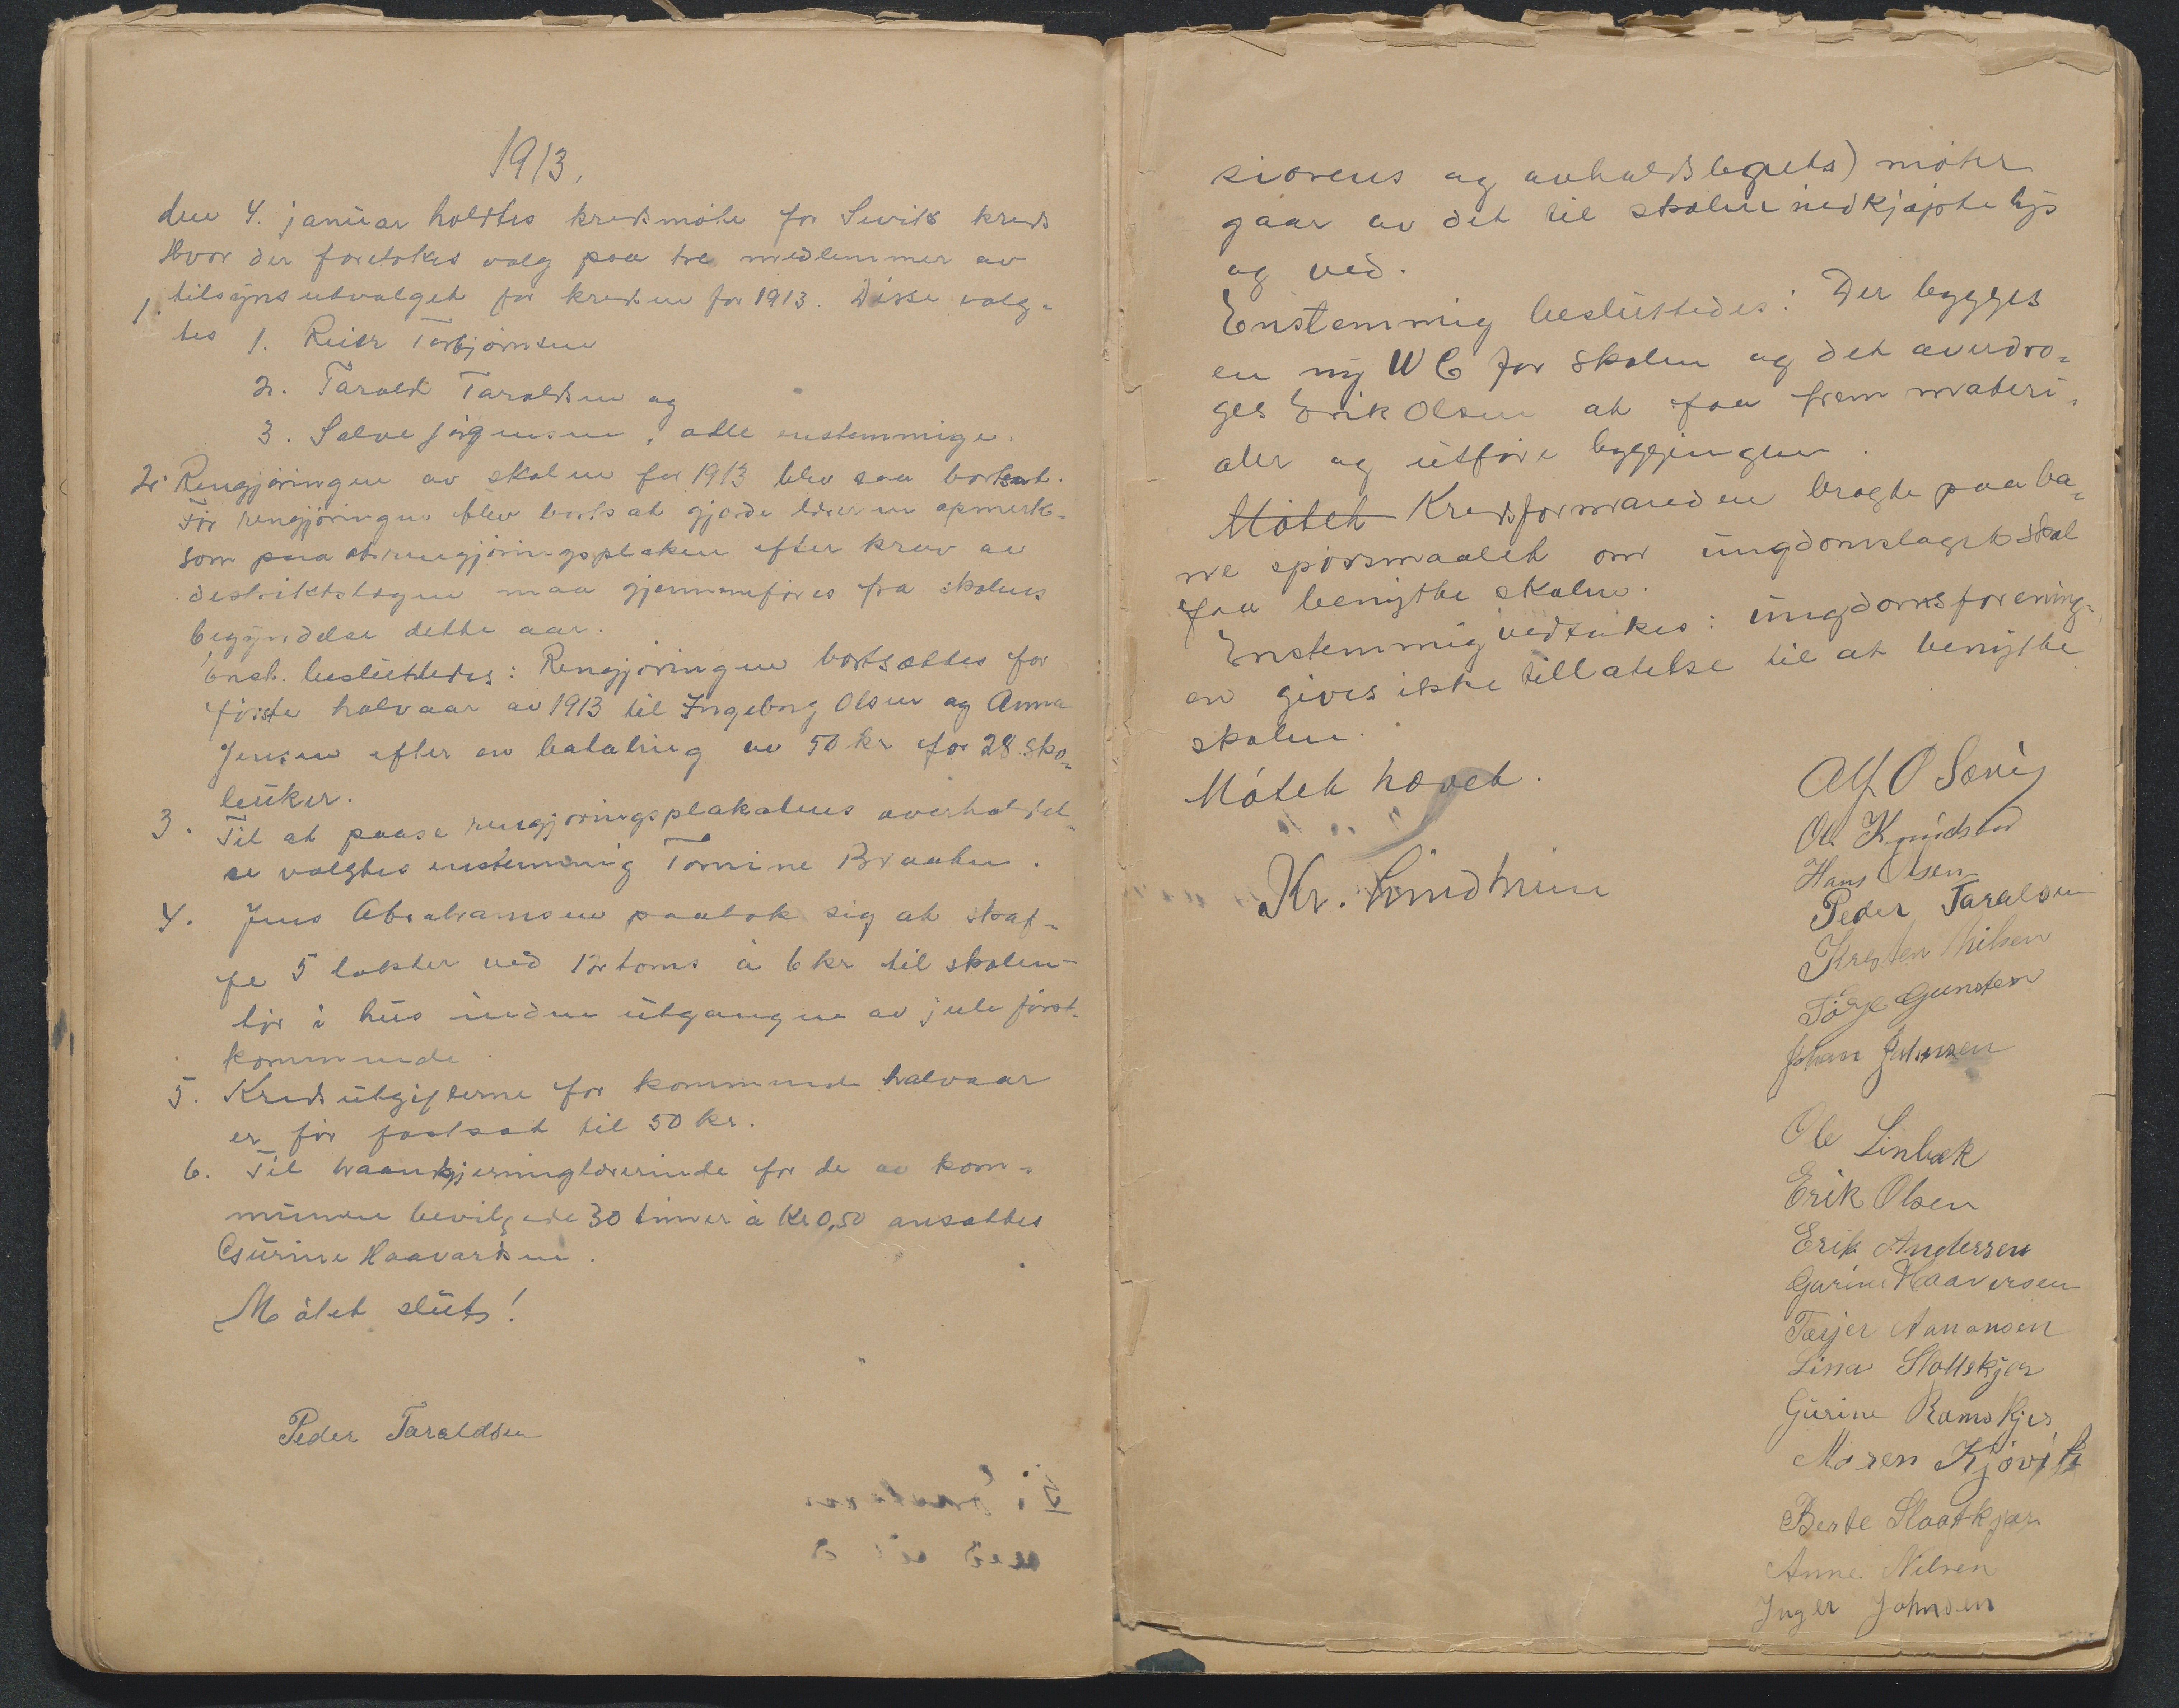 1913.
den 4. januar holdtes kredsmöte for Sevik kreds
Hvor der foretokes valg paa tre medlemmer av
1. tilsynsutvalget for kredsen for 1913. Disse valg-
tes 1. Reier Torbjörnsen
2. Tarald Taraldsen og
3. Salve Jörgensen, alle enstemmige.
2. Rengjöringen av skolen for 1913 blev saa bortsat.
För rengjöringen blev bortsat gjorde læreren opmerk-
som paa at rengjöringsplaken efter krav av
destriktslægen maa gjennemföres fra skolens
begyndelse dette aar.
Enst. besluttedes: Rengjöringen bortsættes for
förste halvaar av 1913 til Ingeborg Olsen og Anna
Jensen efter en betaling av 50 kr for 28 sko-
leuker.
3. Til at paase rengjöringsplakatens overholdel-
se valgtes enstemmig Tomine Braaten.
4. Jens Abrahamsen paatok sig at skaf-
fe 5 lakster ved 12 toms à 6 kr til skolen
tör i hus inden utgangen av juli först-
kommende.
5. Kredsutgifterne for kommende halvaar
er för fastsat til 50 kr.
6. Til haandgjerninglærerinde for de av kom-
munen bevilgede 30 timer à Kr 0,50 ansattes
Gurine Haavardsen.
Mötet sluts!
Peder Taraldsen
sionens og avholdslagets) möter
gaar av det til skolen inkjöpte lys
og ved.
Enstemmig besluttedes: Der bygges
en ny WC for skolen og det overdra-
ges Erik Olsen at faa frem materi-
aler og utföre byggingen.
Mötet Kredsformanden bragte paa ba-
ne spörsmaalet om ungdomslaget skal
faa benytte skolen.
Enstemmig vedtakes: ungdomsforening-
en gives ikke tillatelse til at benytte
skolen.
Mötet hævet.
Kr. Lindheim
Alf O Sævig
Ole Knudsen
Hans Olsen
Peder Taralsen
Kresten Nilsen
Törje Gunsten
Johan Johnsen
Ole Linbæk
Erik Olsen
Erik Andersen
Gurine Haaversen
Tarjer Aanonsen
Lina Slottekjær
Gurine Ramskjer
Maren Kjövik
Berte Slaatkjær
Anne Nilsen
Inger Johnsen